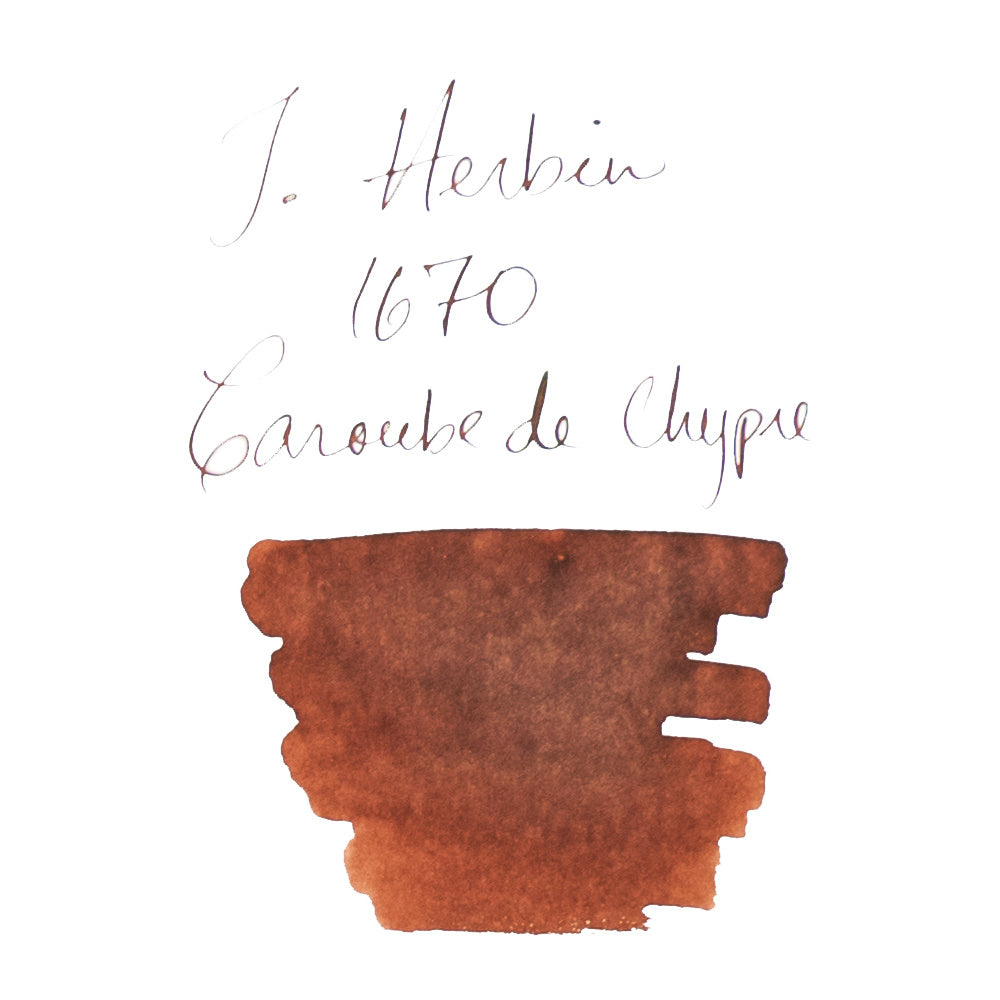 J. Herbin
1670
Caroube de Chypre